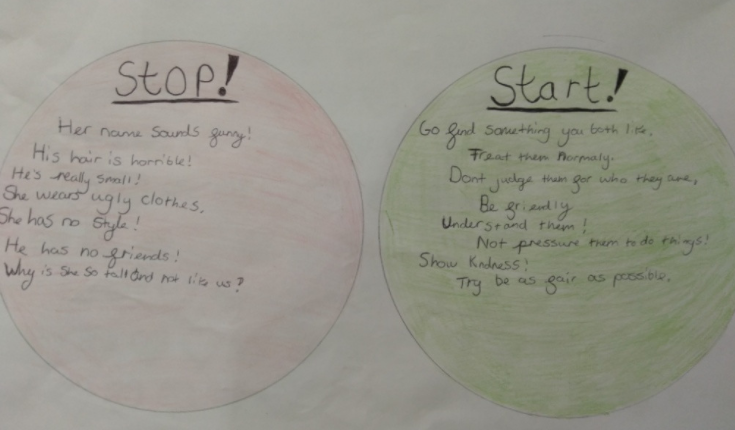 Stop!
Her name sounds funny!
His hair is horrible!
He's really small!
She wears ugly clothes.
She has no style!
He has no friends!
Why is she so tall and not like us?
Start!
Go find something you both like.
Treat them normaly.
Dont judge them for who they are,
Be friendly
Understand them!
Not pressure them to do things!
Show Kndness!
Try be as fair as possible.